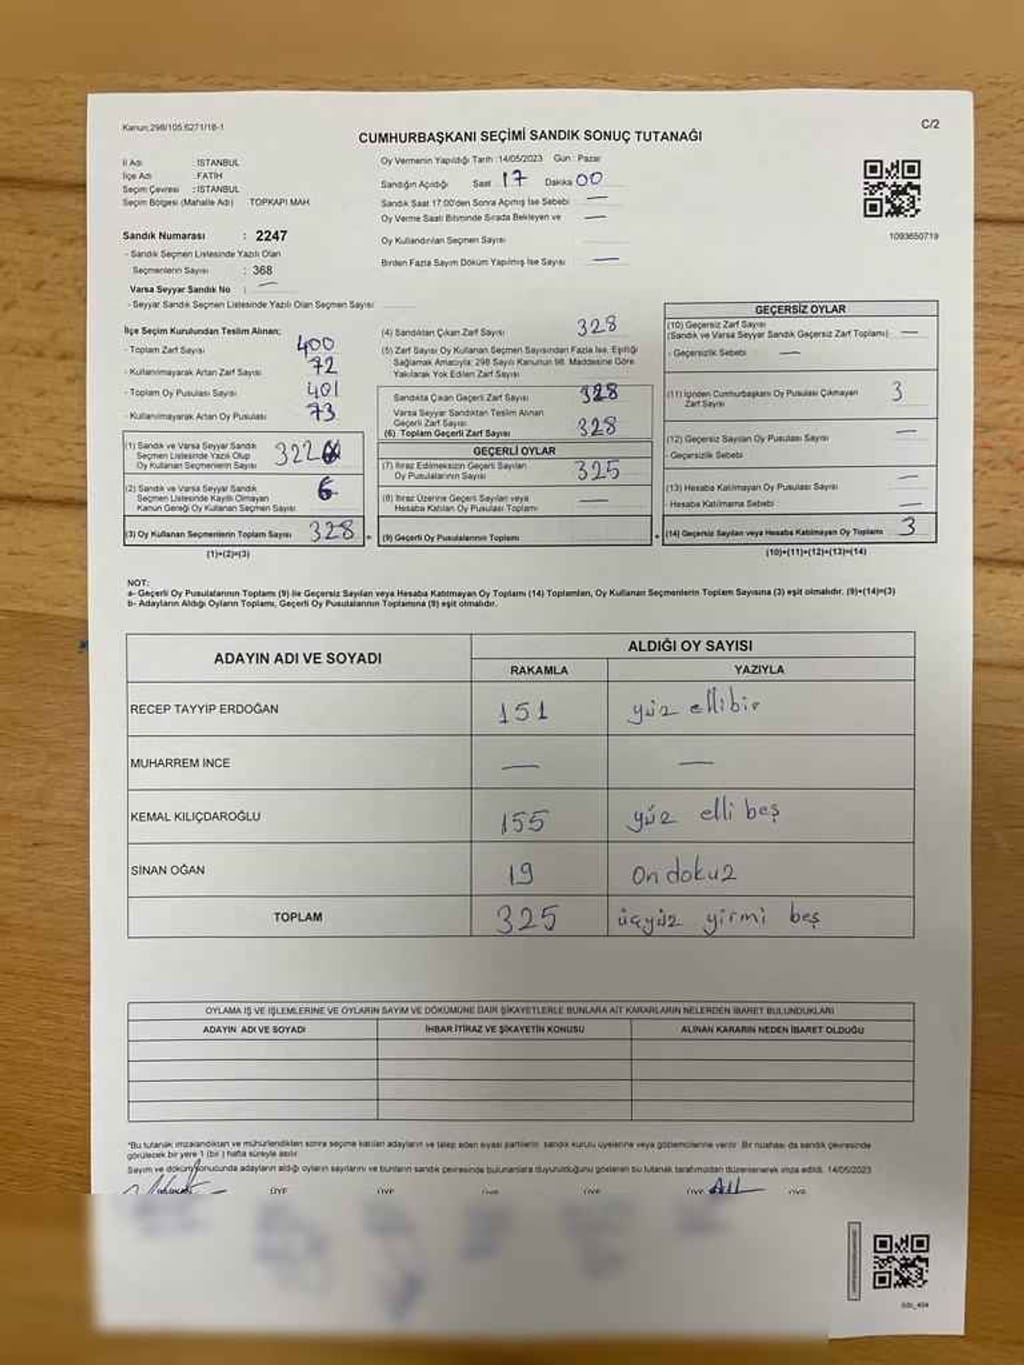 Kanun:298/105.6271/18-1
C/2
CUMHURBAŞKANI SEÇİMİ SANDIK SONUÇ TUTANAĞI
İl Adı : İSTANBUL
İlçe Adı : FATİH
Seçim Çevresi : İSTANBUL
Seçim Bölgesi (Mahalle Adı) TOPKAPI MAH
Sandık Numarası : 2247
- Sandık Seçmen Listesinde Yazılı Olan
Seçmenlerin Sayısı : 368
Varsa Seyyar Sandık No : —
- Seyyar Sandık Seçmen Listesinde Yazılı Olan Seçmen Sayısı :
Oy Vermenin Yapıldığı Tarih :14/05/2023 Gün : Pazar
Sandığın Açıldığı Saat 17 Dakika 00
Sandık Saat 17:00'den Sonra Açmış İse Sebebi : —
Oy Verme Saati Bitiminde Sırada Bekleyen ve —
Oy Kullandırılan Seçmen Sayısı
Birden Fazla Sayım Döküm Yapılmış İse Sayısı : —
1093650719
İlçe Seçim Kurulundan Teslim Alınan;
- Toplam Zarf Sayısı 400
- Kullanılmayarak Artan Zarf Sayısı 72
- Toplam Oy Pusulası Sayısı 401
- Kullanılmayarak Artan Oy Pusulası 73
(1) Sandık ve Varsa Seyyar Sandık
Seçmen Listesinde Yazılı Olup
Oy Kullanan Seçmenlerin Sayısı 322
(2) Sandık ve Varsa Seyyar Sandık
Seçmen Listesinde Kayıtlı Olmayan
Kanun Gereği Oy Kullanan Seçmen Sayısı 6
(3) Oy Kullanan Seçmenlerin Toplam Sayısı 328
(1)+(2)=(3)
(4) Sandıktan Çıkan Zarf Sayısı 328
(5) Zarf Sayısı Oy Kullanan Seçmen Sayısından Fazla İse, Eşitliği
Sağlamak Amacıyla; 298 Sayılı Kanunun 98. Maddesine Göre
Yakılarak Yok Edilen Zarf Sayısı
Sandıkta Çıkan Geçerli Zarf Sayısı 328
Varsa Seyyar Sandıktan Teslim Alınan
Geçerli Zarf Sayısı
(6) Toplam Geçerli Zarf Sayısı 328
GEÇERLİ OYLAR
(7) İtiraz Edilmeksizin Geçerli Sayılan
Oy Pusulalarının Sayısı 325
(8) İtiraz Üzerine Geçerli Sayılan veya
Hesaba Katılan Oy Pusulası Toplamı —
(9) Geçerli Oy Pusulalarının Toplamı
GEÇERSİZ OYLAR
(10) Geçersiz Zarf Sayısı
(Sandık ve Varsa Seyyar Sandık Geçersiz Zarf Toplamı) —
- Geçersizlik Sebebi —
(11) İçinden Cumhurbaşkanı Oy Pusulası Çıkmayan
Zarf Sayısı 3
(12) Geçersiz Sayılan Oy Pusulası Sayısı —
- Geçersizlik Sebebi
(13) Hesaba Katılmayan Oy Pusulası Sayısı —
- Hesaba Katılmama Sebebi —
(14) Geçersiz Sayılan veya Hesaba Katılmayan Oy Toplamı 3
(10)+(11)+(12)+(13)=(14)
NOT:
a- Geçerli Oy Pusulalarının Toplamı (9) ile Geçersiz Sayılan veya Hesaba Katılmayan Oy Toplamı (14) Toplamları, Oy Kullanan Seçmenlerin Toplam Sayısına (3) eşit olmalıdır. (9)+(14)=(3)
b- Adayların Aldığı Oyların Toplamı, Geçerli Oy Pusulalarının Toplamına (9) eşit olmalıdır.
ADAYIN ADI VE SOYADI
ALDIĞI OY SAYISI
RAKAMLA YAZIYLA
RECEP TAYYİP ERDOĞAN 151 yüz ellibir
MUHARREM İNCE — —
KEMAL KILIÇDAROĞLU 155 yüz elli beş
SİNAN OĞAN 19 on dokuz
TOPLAM 325 üçyüz yirmi beş
OYLAMA İŞ VE İŞLEMLERİNE VE OYLARIN SAYIM VE DÖKÜMÜNE DAİR ŞİKAYETLERLE BUNLARA AİT KARARLARIN NELERDEN İBARET BULUNDUKLARI
ADAYIN ADI VE SOYADI İHBAR İTİRAZ VE ŞİKAYETİN KONUSU ALINAN KARARIN NEDEN İBARET OLDUĞU
*Bu tutanak imzalandıktan ve mühürlendikten sonra seçime katılan adayların ve talep eden siyasi partilerin sandık kurulu üyelerine veya gözlemcilerine verilir. Bir nüshası da sandık çevresinde
görülecek bir yere 1 (bir) hafta süreyle asılır.
Sayım ve döküm sonucunda adayların aldığı oyların sayılarını ve bunların sandık çevresinde bulunanlara duyurulduğunu gösteren bu tutanak tarafımızdan düzenlenerek imza edildi. 14/05/2023
ÜYE ÜYE ÜYE ÜYE ÜYE ÜYE